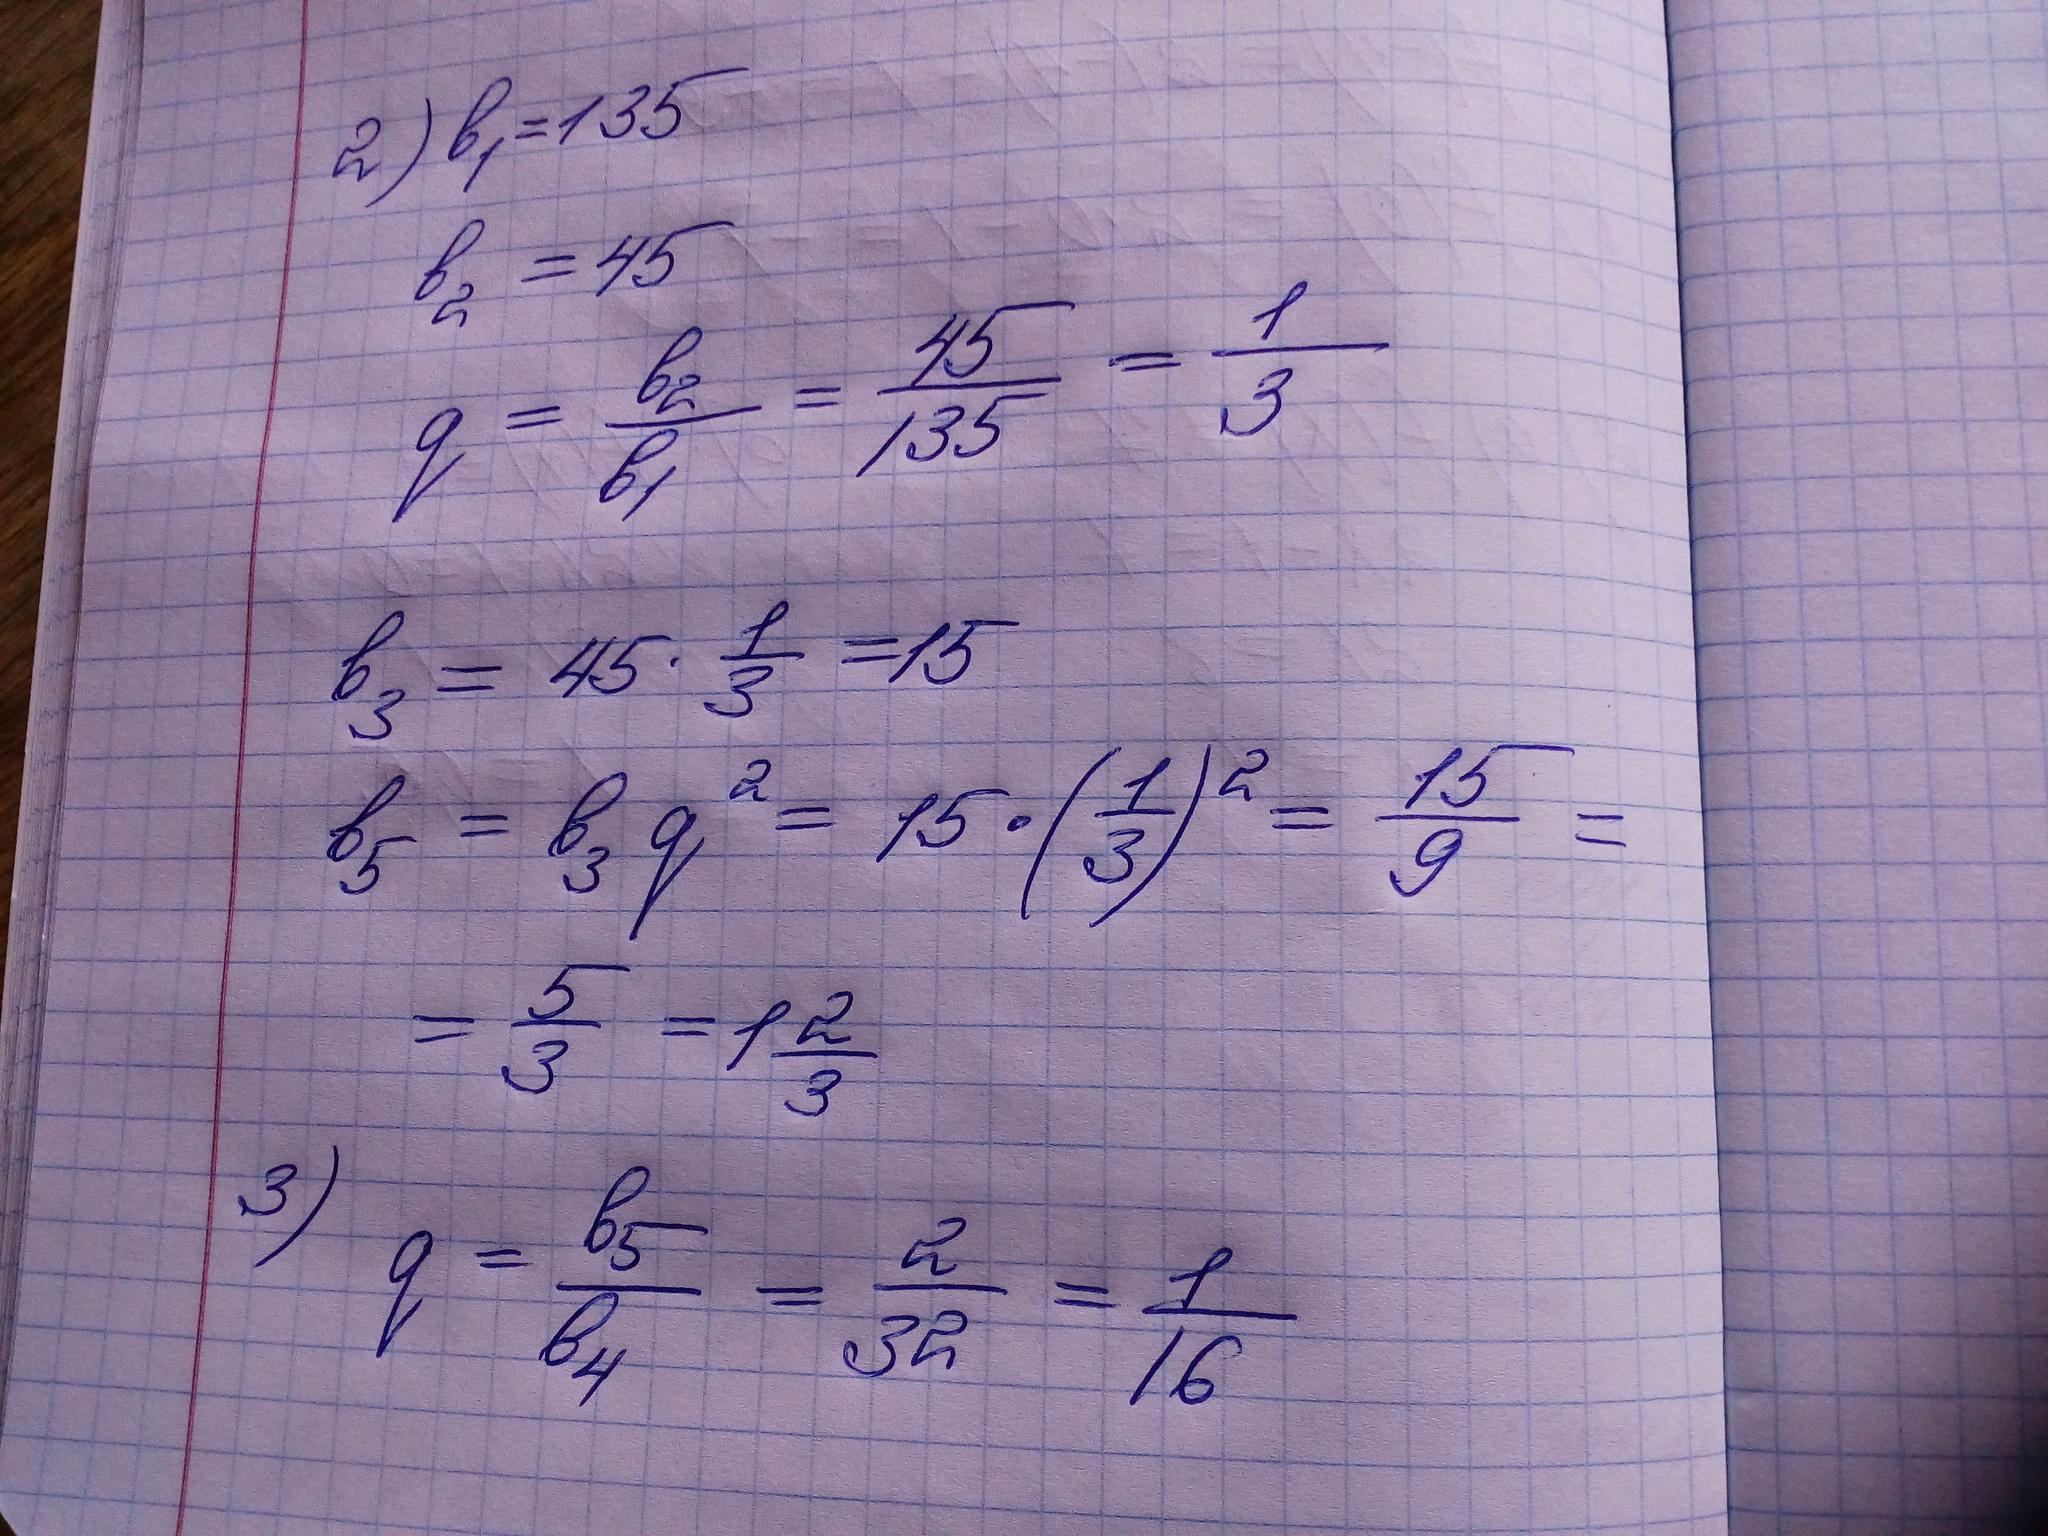 2) b₁=135
b₂ = 45
q = b₂/b₁ = 45/135 = 1/3
b₃ = 45 · 1/3 = 15
b₅ = b₃ q² = 15 · (1/3)² = 15/9 =
= 5/3 = 1 2/3
3) q = b₅/b₄ = 2/32 = 1/16